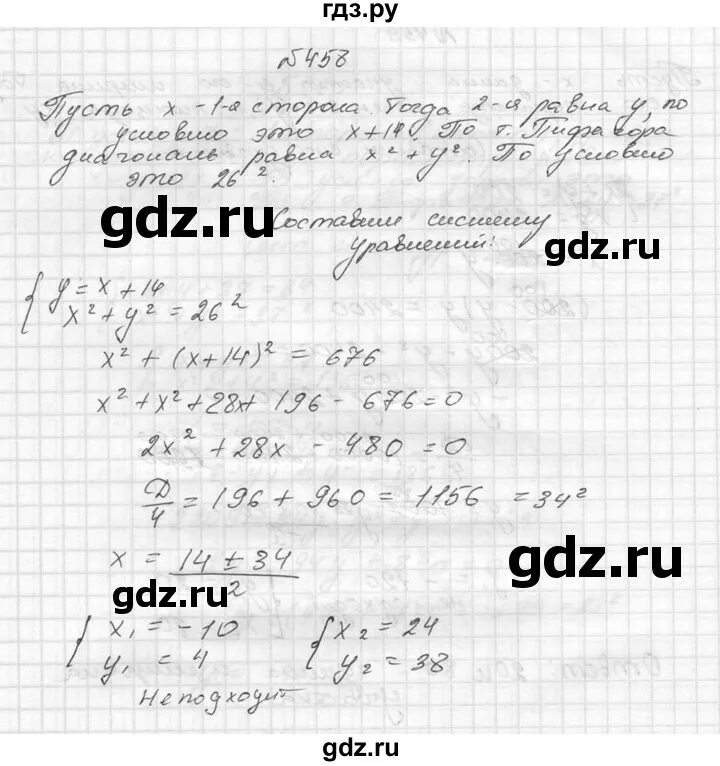 гдз.ру
№458
Пусть x - 1-я сторона. Тогда 2-я равна y, по
условию это x+14. По т. Пифагора
диагональ равна x² + y². По условию
это 26².
gdz.ru
Составим систему
уравнений:
gdz.ru
{ y = x + 14
x² + y² = 26²
x² + (x+14)² = 676
x² + x² + 28x + 196 - 676 = 0
2x² + 28x - 480 = 0
Д/4 = 196 + 960 = 1156 = 34²
x = 14 ± 34 / 2
gdz.ru
gdz.ru
{ x₁ = -10 { x₂ = 24
y₁ = 4 y₂ = 38
Не подходит
gdz.ru